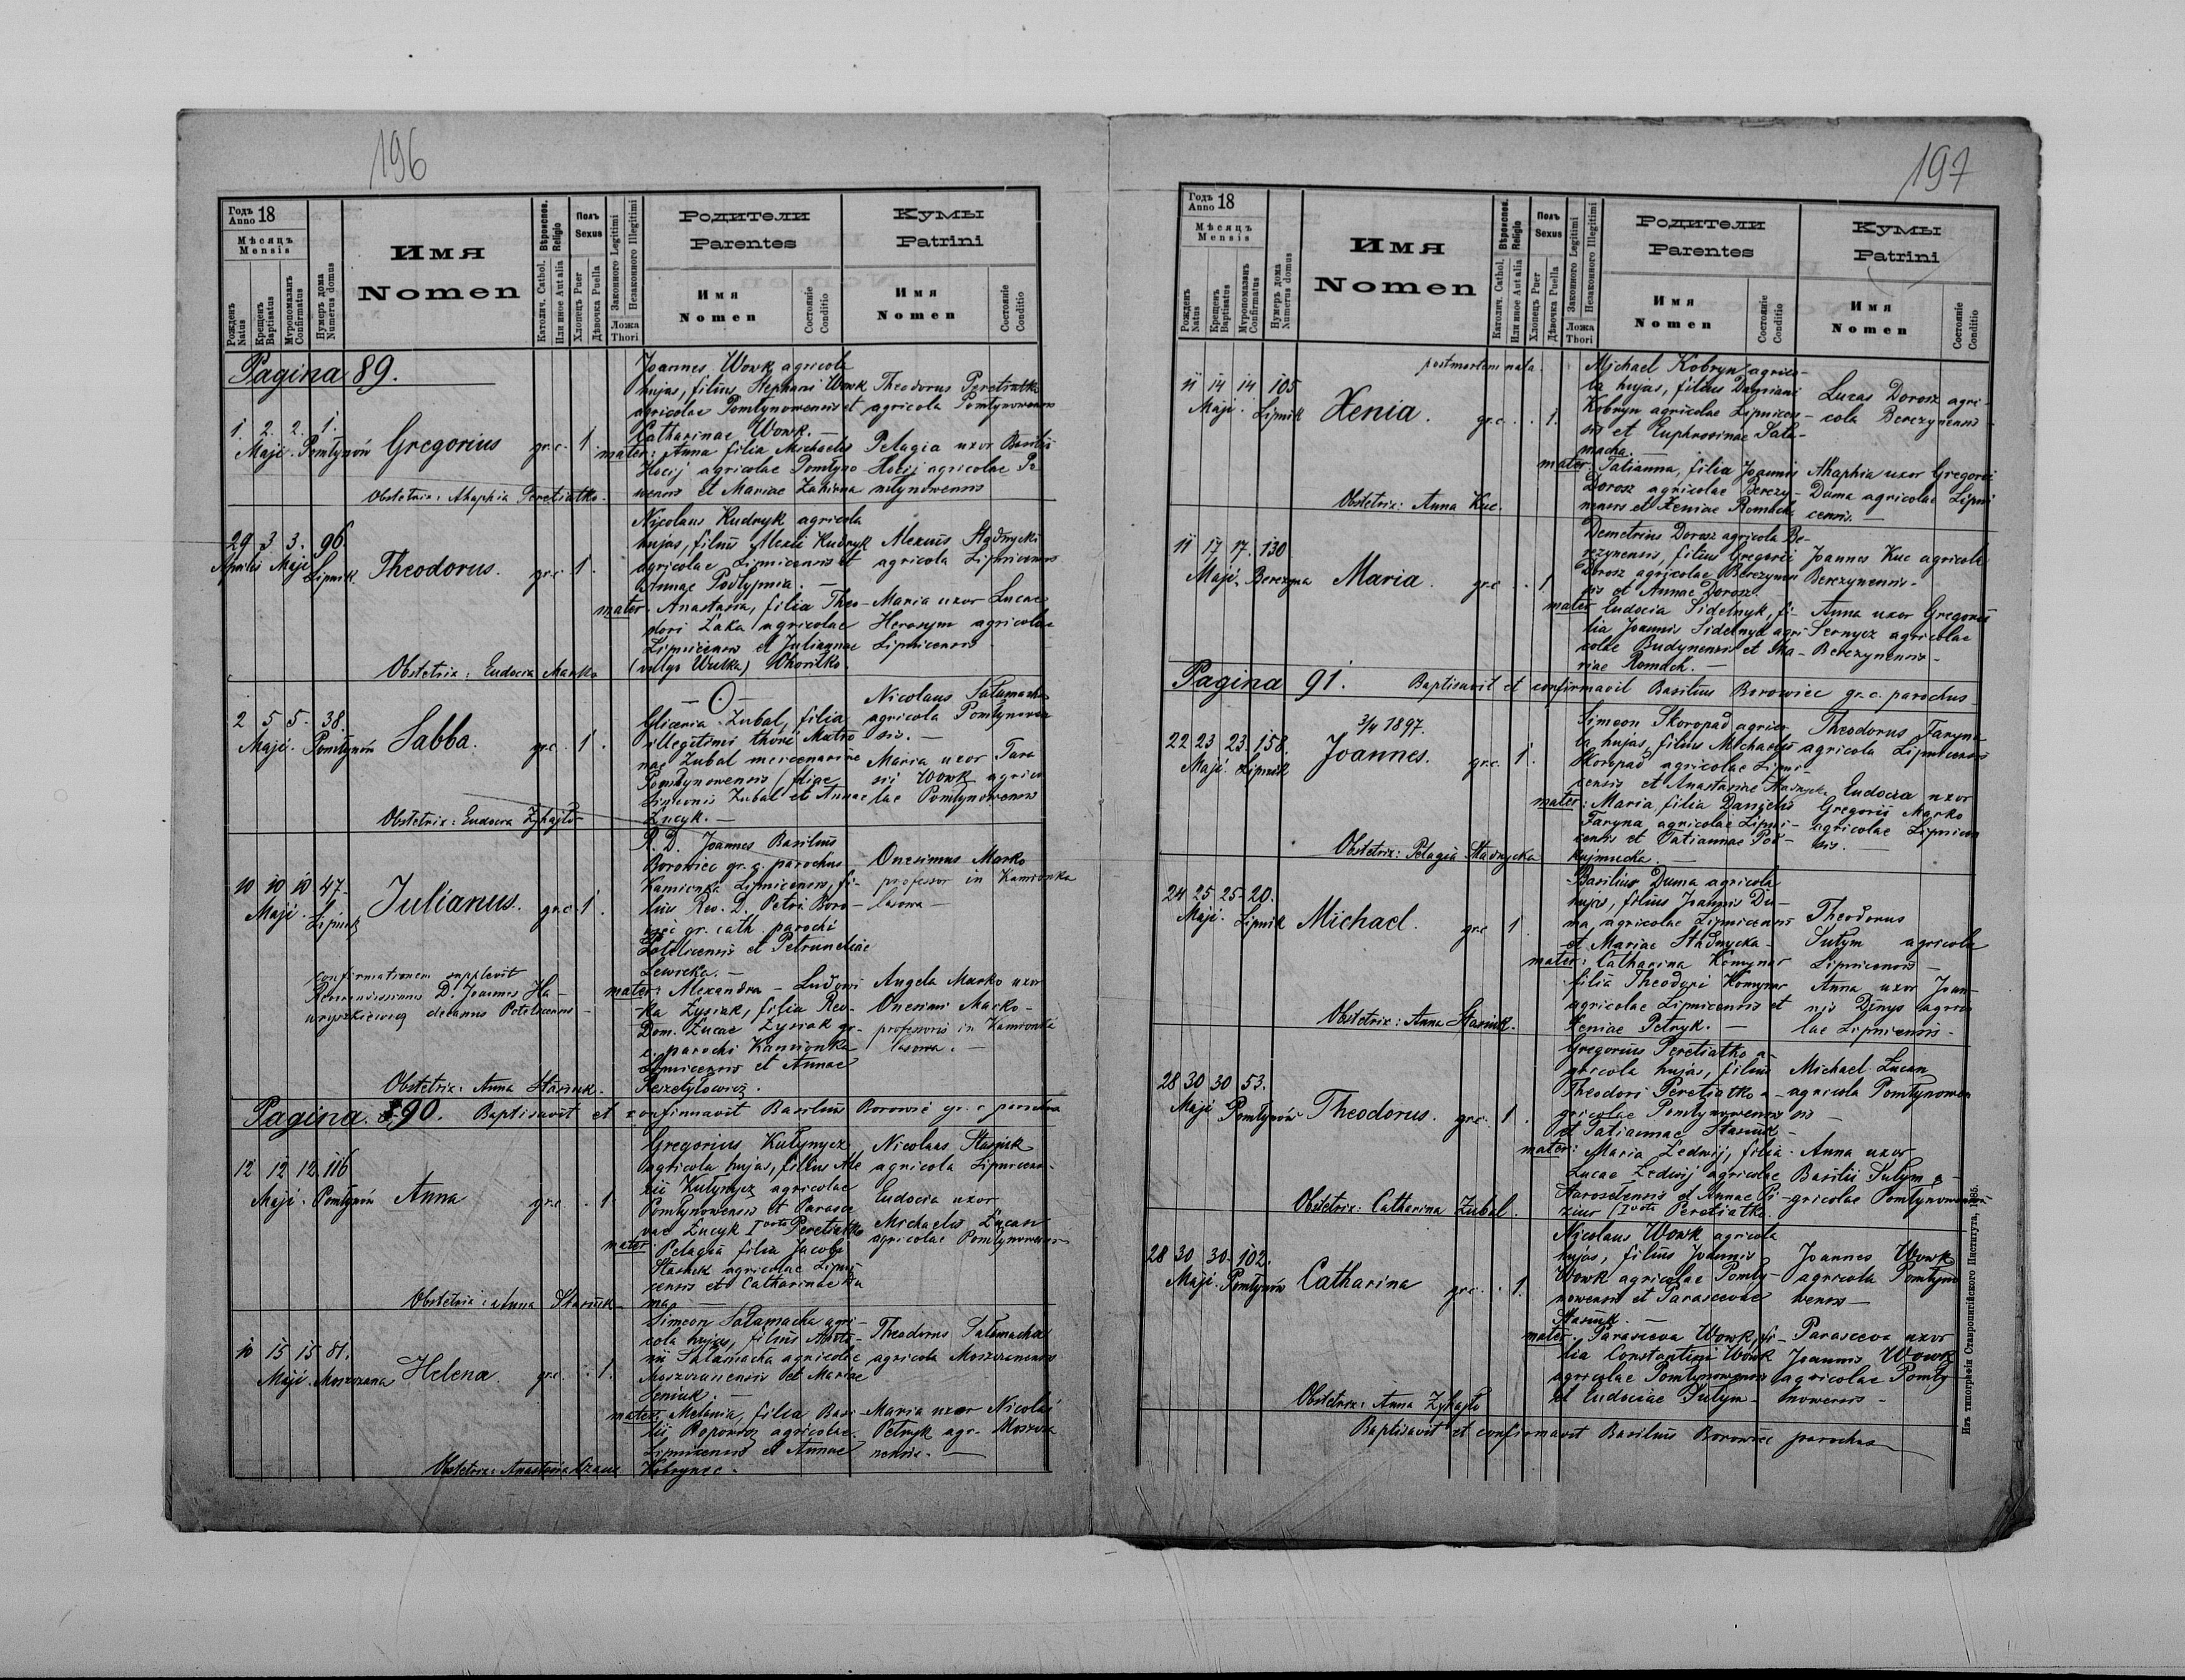 196
Годъ Anno 18
Мѣсяцъ
Mensis
Рожденъ Natus
Крещенъ Baptisatus
Мѵропомазанъ Confirmatus
Нумеръ дома Numerus domus
Имя
Nomen
Католич. Cathol.
Или иное Aut alia
Вѣроиспов. Religio
Полъ
Sexus
Хлопецъ Puer
Дѣвочка Puella
Законного Legitimi
Незаконного Illegitimi
Ложа
Thori
Родители
Parentes
Имя
Nomen
Состояніе
Conditio
Кумы
Patrini
Имя
Nomen
Состояніе
Conditio
Pagina 89.
1. 2. 2. 1.
Maji. Pomłynów Gregorius gr.c. 1.
Joannes Wowk agricola
hujas, filius Stephani Wowk
agricolae Pomłynowensis et
Catharinae Wowk. —
mater: Anna filia Michaelis
Hocij agricolae Pomłyno
wensis et Mariae
Theodorus Peretiatko
agricola Pomłynowensis
Pelagia uxor Basilii
Hocij agricolae Po
młynowensis
Obstetrix: Ahaphia Peretiatko.
29 3 3. 96
Aprilis Maji Lipnik. Theodorus. gr.c. 1.
Nicolaus Kudryk agricola
hujas, filius Alexii Kudryk
agricolae Lipnicensis et
Annae
mater. Anastasia, filia Theo-
dori Łaka agricolae
Lipnicensis et Julianae
(vulgo Wutka)
Alexius Stadnycki
agricola Lipnicensis
Maria uxor Lucae
Herasym agricolae
Lipnicensis
Obstetrix: Eudocia Marko
2 5 5. 38.
Maji. Pomłynów Sabba. gr.c. 1.
— O —
Gliceria Zubal, filia
illegitimi thori Matro
nae Zubal mercenariae
Pomłynowensis (filiae
Simeonis Zubal et Annae
Łucyk. —
Nicolaus Sałamacha
agricola Pomłynowen
sis. —
Maria uxor Tara
sii Wowk agrico
lae Pomłynowensis
Obstetrix: Eudocia Zyhajło
10 10 10 47.
Maji. Lipnik Julianus. gr.c. 1.
R. D. Joannes Basilius
Borowiec gr. c. parochus
Kamionka Lipnicensis, fi-
lius Rev. D. Petri Boro-
wiec gr. cath. parochi
Potoliczensis et Petruneliae
Lewicka. —
mater: Alexandra – Ludovi
ka Łysiak, filia Rev.
Dom. Lucae Łysiak gr.
c. parochi Kamionka
Lipnicensis et Annae
Reszetyłowicz.
Onesimus Marko
professor in Kamionka
lasowa —
Angela Marko uxor
Onesimi Marko –
professoris in Kamionka
lasowa. —
confirmationem supplevit
Reverendissimus D. Joannes Ha-
wryszkiewicz decanus
Obstetrix: Anna Stasiuk.
Pagina 90. Baptisavit et confirmavit Basilius Borowiec gr. c. parochus
12 12 12 116
Maji. Pomłynów Anna gr.c. . 1.
Gregorius Kułynycz
agricola hujas, filius Ale
xii Kułynycz agricolae
Pomłynowensis et Parasce
vae Łucyk I voto Peretiatko
mater. Pelagia filia Jacobi
Stasiuk agricolae Lipni
censis et Catharinae Du
ma —
Nicolaus Stasiuk
agricola Lipnicen-
Eudocia uxor
Michaelis Łucan
agricolae Pomłynowensis
Obstetrix: Anna Stasiuk
10 15 15 81.
Maji. Moszczana Helena. gr.c. . 1.
Simeon Sałamacha agri-
cola hujas, filius
Sałamacha agricolae
Moszczanensis et Mariae
Seniuk. —
mater. Melania, filia Basi
lii agricolae
Lipnicensis et Annae
Kobryniec.
Theodorus Sałamacha
agricola Moszczanensis
Maria uxor Nicolai
Petryk agr. Moszcza
nensis. —
Obstetrix: Anastasia
197
Годъ Anno 18
Мѣсяцъ
Mensis
Рожденъ Natus
Крещенъ Baptisatus
Мѵропомазанъ Confirmatus
Нумеръ дома Numerus domus
Имя
Nomen
Католич. Cathol.
Или иное Aut alia
Вѣроиспов. Religio
Полъ
Sexus
Хлопецъ Puer
Дѣвочка Puella
Законного Legitimi
Незаконного Illegitimi
Ложа
Thori
Родители
Parentes
Имя
Nomen
Состояніе
Conditio
Кумы
Patrini
Имя
Nomen
Состояніе
Conditio
postmortem nata.
11 14 14 105
Maji. Lipnik Xenia. gr.c. . . 1.
Michael Kobryn agrico-
la hujas, filius Damiani
Kobryn agricolae Lipnicen-
sis et Euphrosinae Sała-
macha. —
mater: Tatianna, filia Joannis
Dorosz agricolae Berezy-
nensis et Xeniae Romach
Lucas Dorosz agri-
cola Berezynensis
Ahaphia uxor Gregorii
Duma agricolae Lipni
censis. —
Obstetrix: Anna Kuc.
11 17 17. 130
Maji. Berezyna Maria. gr.c . . 1
Demetrius Dorosz agricola Be-
rezynensis, filius Gregorii
Dorosz agricolae Berezynen
sis et Annae Dorosz
mater Eudocia Sidelnyk, fi-
lia Joannis Sidelnyk agri
colae Budynensis et Ma-
riae Romach. —
Joannes Kuc agricola
Berezynensis.
Anna uxor Gregorii
Sernycz agricolae
Berezynensis —
Pagina 91. Baptisavit et confirmavit Basilius Borowiec gr. c. parochus
3/4 1897.
22 23 23. 158.
Maji. Lipnik Joannes. gr.c. 1.
Simeon Skoropad agrico
la hujas, filius Michaelis
Skoropad agricolae Lipni-
censis et Anastasiae Stadnycka
mater: Maria filia Danielis
Faryna agricolae Lipni-
censis et Tatiannae Pod-
kujmucha. —
Theodorus Faryna
agricola Lipnicensis
Eudocia uxor
Gregorii Marko
agricolae Lipnicen
sis. —
Obstetrix: Pelagia Stadnycka
24 25 25. 20.
Maji. Lipnik Michael. gr.c 1.
Basilius Duma agricola
hujas, filius Joannis Du-
ma, agricolae Lipnicensis
et Mariae Stadnycka –
mater: Catharina Komynar
filia Theodori Komynar
agricolae Lipnicensis et
Xeniae Petryk. —
Theodorus
Sułym agricola
Lipnicensis —
Anna uxor Joan-
nis Denys agrico
lae Lipnicensis —
Obstetrix: Anna Stasiuk.
28 30 30 53.
Maji Pomłynów Theodorus. gr.c. 1.
Gregorius Peretiatko a-
gricola hujas, filius
Theodori Peretiatko a-
gricolae Pomłynowensis
et Tatiannae Stasiuk –
mater: Maria Ledwij, filia
Lucae Ledwij agricolae
Staroselensis et Annae
(I voto Peretiatko.
Michael Łucan
agricola Pomłynowen
sis —
Anna uxor
Basilii Sułym a-
gricolae Pomłynowensis
Obstetrix: Catharina Zubal.
28 30 30. 102.
Maji. Pomłynów Catharina gr.c. . 1.
Nicolaus Wowk agricola
hujas, filius Joannis
Wowk agricolae Pomły-
nowensis et Parascevae
Stasiuk. —
mater. Parasceva Wowk, fi-
lia Constantini Wowk
agricolae Pomłynowensis
et Eudociae Sułym –
Joannes Wowk
agricola Pomłyno
wensis —
Parasceva uxor
Joannis Wowk
agricolae Pomły
nowensis –
Obstetrix: Anna Zyhajło
Baptisavit et confirmavit Basilius Borowiec parochus
Изъ типографіи Ставропигійского Института, 1885.